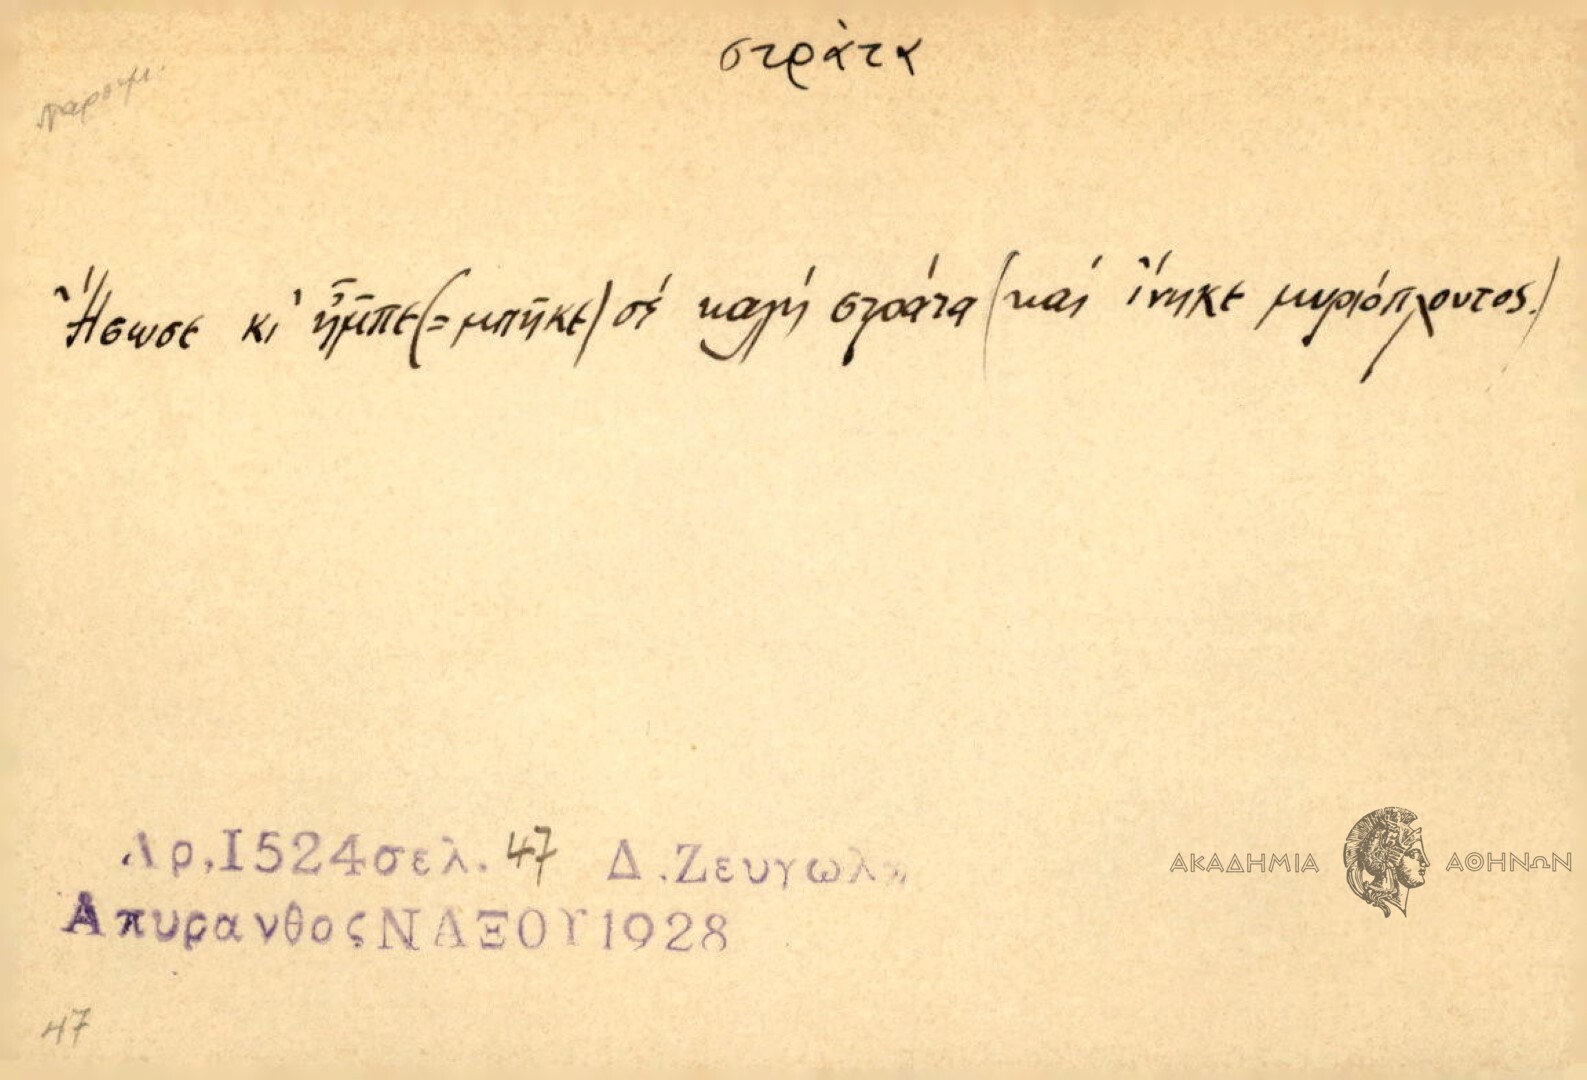 στράτα
παροιμ.
Ἥσωσε κι' ἦμπε (= μπῆκε) σέ καλή στράτα (καί ἴνηκε μυριόπλουτος.)
Αρ. 1524 σελ. 47 Δ. Ζευγωλη
Απυρανθος ΝΑΞΟΥ 1928
ΑΚΑΔΗΜΙΑ ΑΘΗΝΩΝ
47